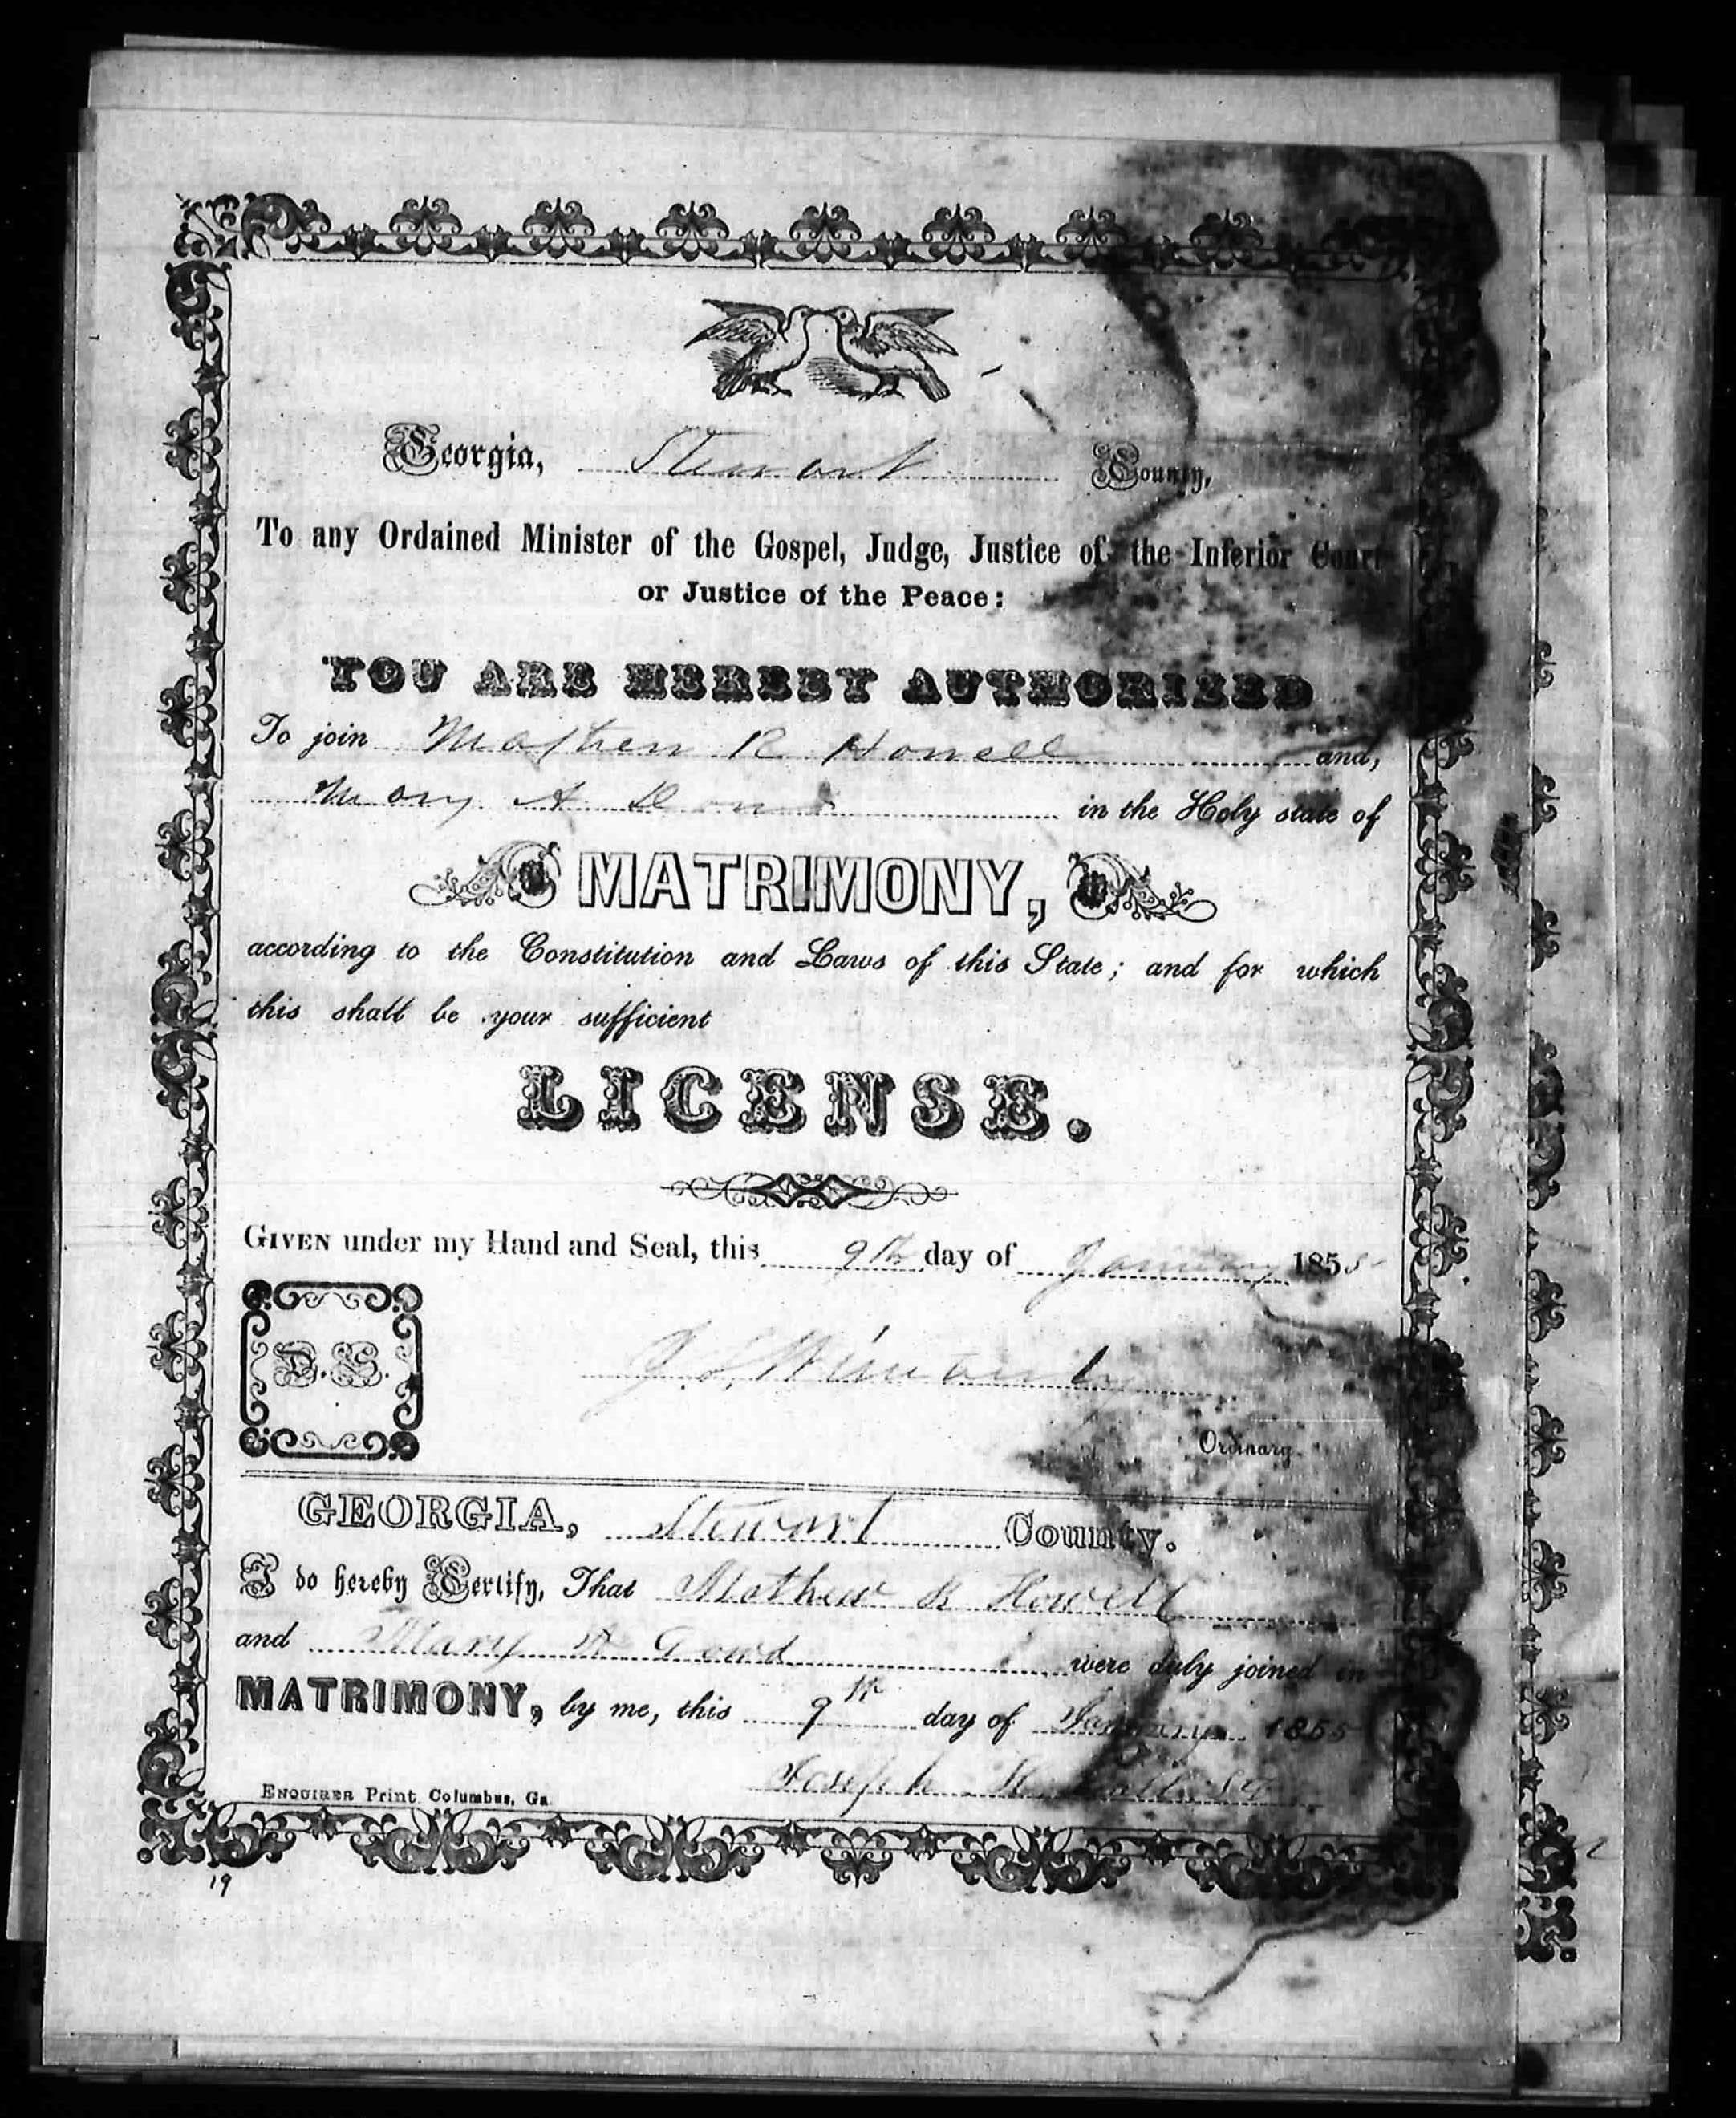 Georgia, Stewart County,
To any Ordained Minister of the Gospel, Judge, Justice of the Inferior Court
or Justice of the Peace:
YOU ARE HEREBY AUTHORIZED
To join Mathew R Howell and,
Mary A in the Holy state of
MATRIMONY,
according to the Constitution and Laws of this State; and for which
this shall be your sufficient
LICENSE.
GIVEN under my Hand and Seal, this 9th day of January 1855
L.S.
J. L. Wimberly
Ordinary.
GEORGIA, Stewart County.
I do hereby Certify, That Mathew R Howell
and Mary A were duly joined in
MATRIMONY, by me, this 9th day of January 1855
Joseph
ENQUIRER Print Columbus, Ga
19